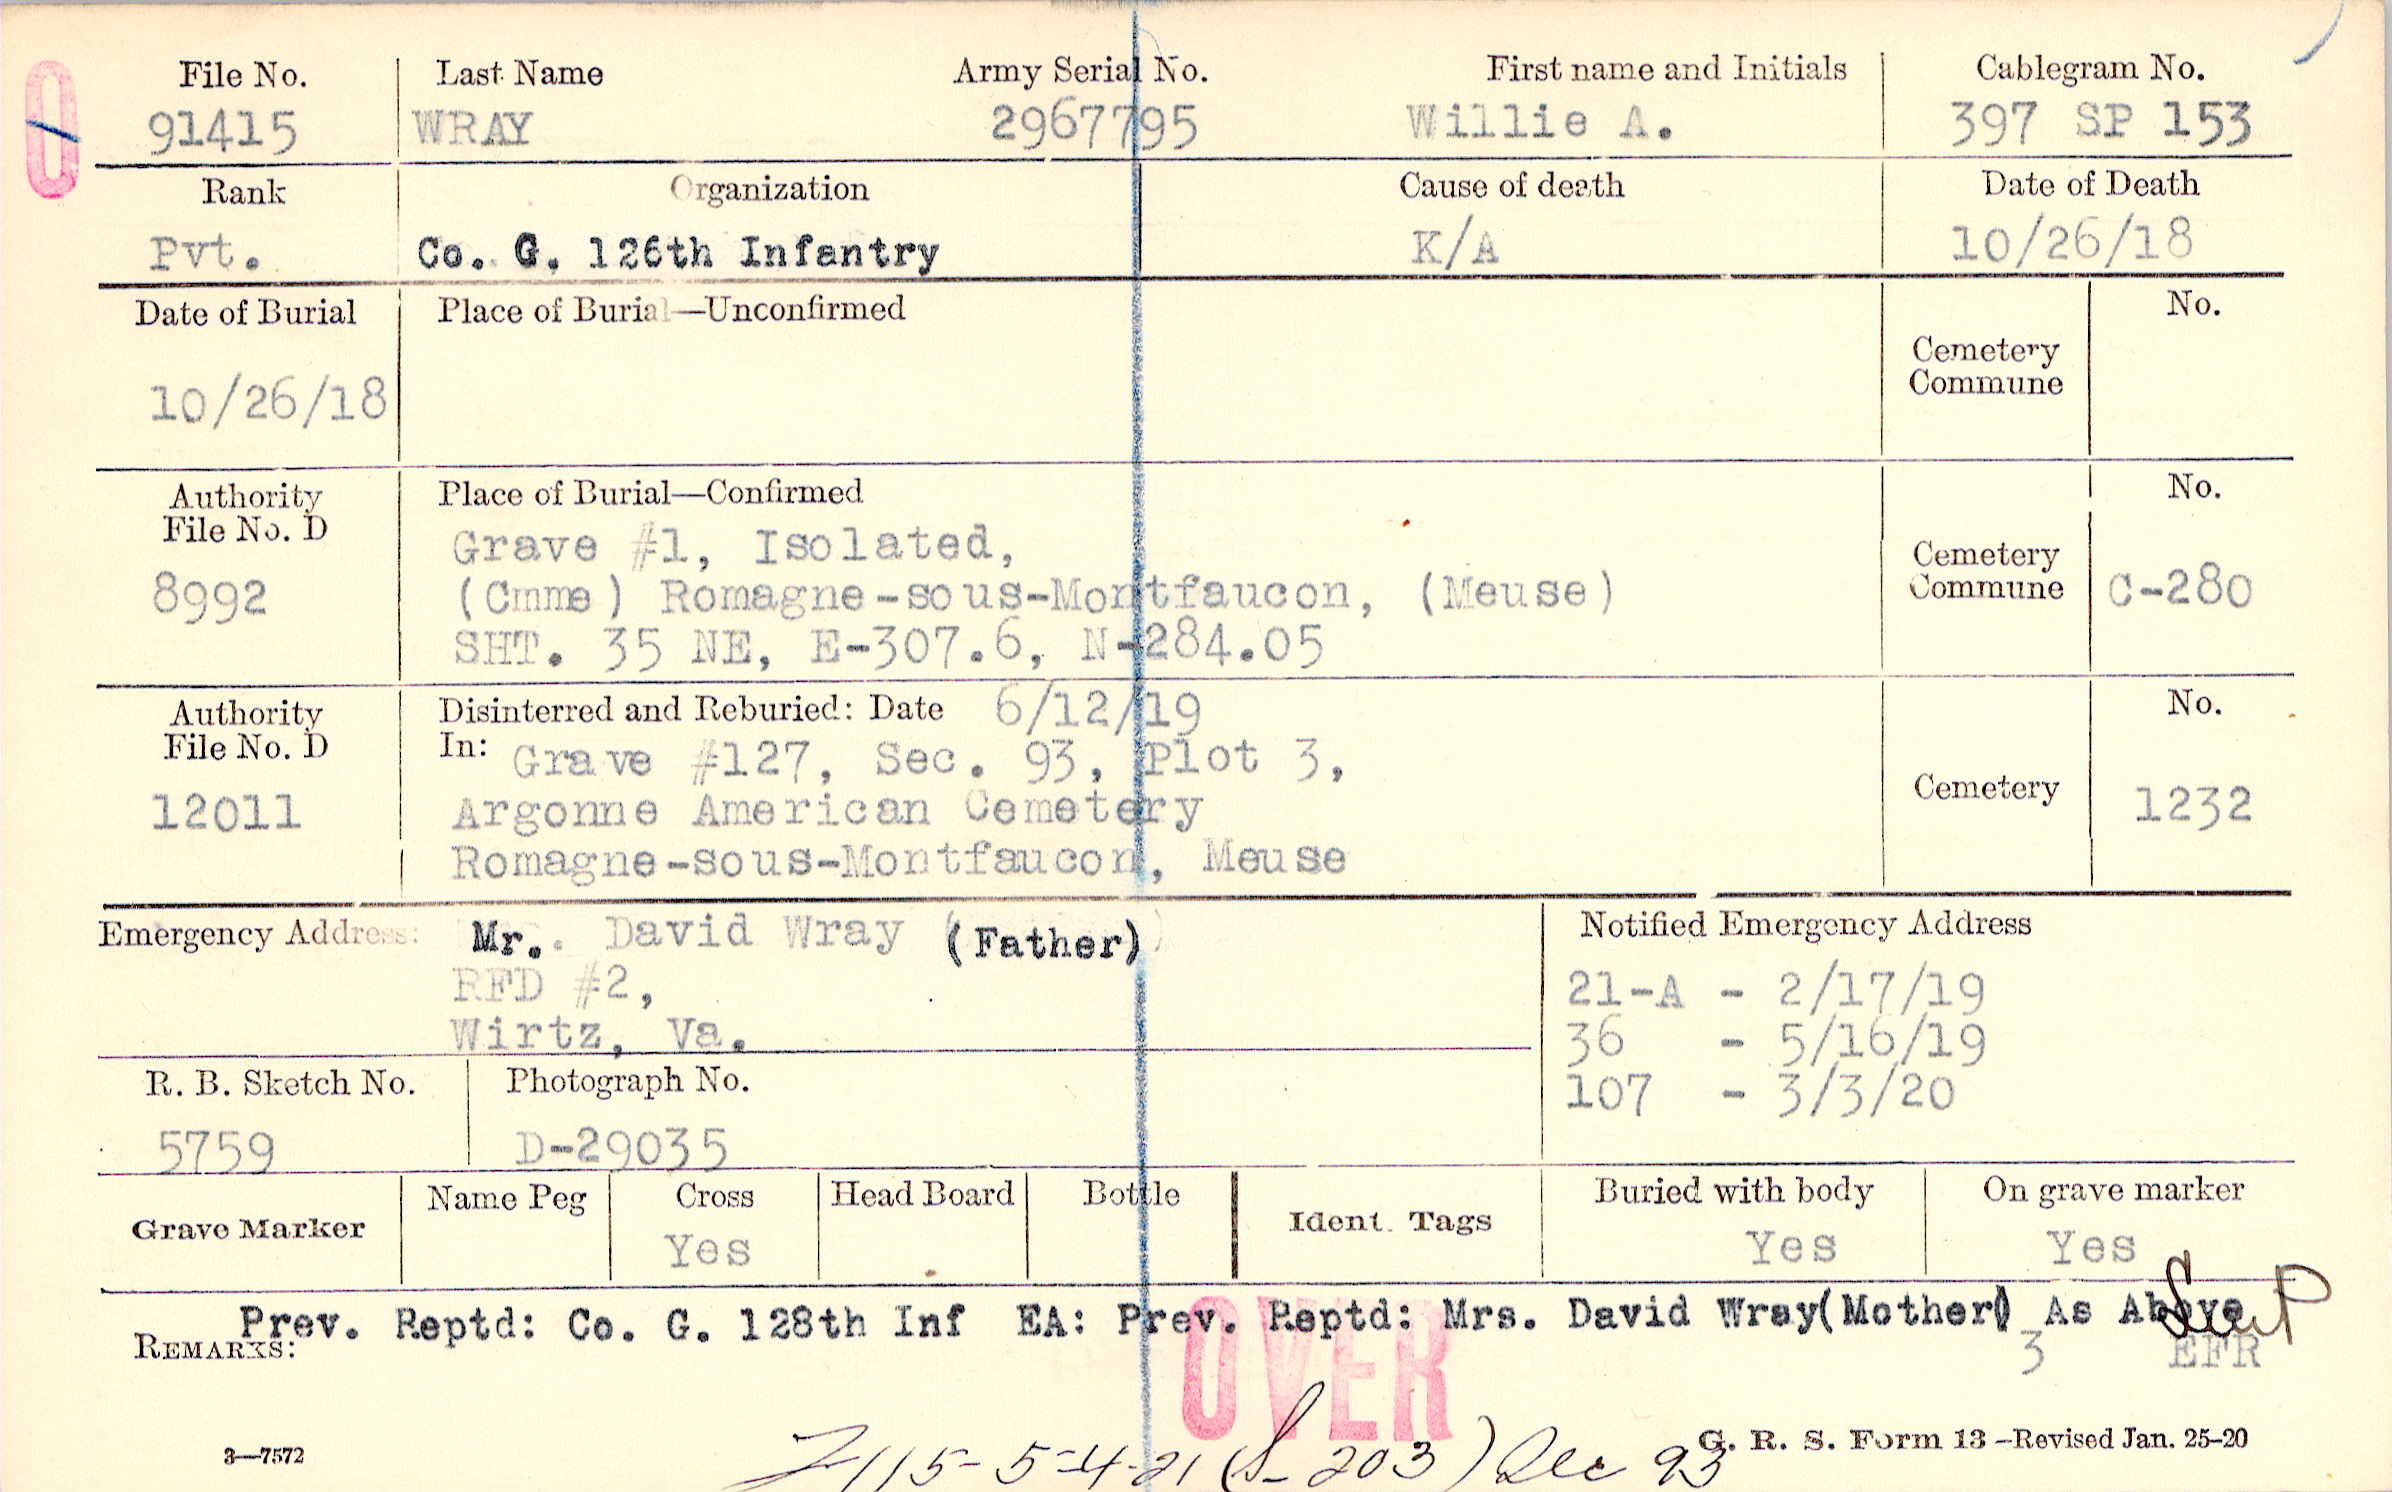 File No. Last Name Army Serial No. First name and Initials Cablegram No.
91415 WRAY 2967795 Willie A. 397 SP 153
Rank Organization Cause of death Date of Death
Pvt. Co. G. 126th Infantry K/A 10/26/18
Date of Burial Place of Burial—Unconfirmed No.
Cemetery
Commune
10/26/18
Authority Place of Burial—Confirmed No.
File No. D
Grave #1, Isolated,
Cemetery
8992 (Cmme) Romagne-sous-Montfaucon, (Meuse) Commune C-280
SHT. 35 NE, E-307.6, N-284.05
Authority Disinterred and Reburied: Date 6/12/19 No.
File No. D In: Grave #127, Sec. 93, Plot 3,
12011 Argonne American Cemetery Cemetery 1232
Romagne-sous-Montfaucon, Meuse
Emergency Address: Mr. David Wray (Father) Notified Emergency Address
RFD #2, 21-A - 2/17/19
Wirtz, Va. 36 - 5/16/19
R. B. Sketch No. Photograph No. 107 - 3/3/20
5759 D-29035
Grave Marker Name Peg Cross Head Board Bottle Ident. Tags Buried with body On grave marker
Yes Yes Yes
Prev. Reptd: Co. G. 128th Inf EA: Prev. Reptd: Mrs. David Wray(Mother) As Above
REMARKS: 3 EFR
OVER
3—7572 G. R. S. Form 13—Revised Jan. 25-20
115-5-4-21 (S-203) Sec 93